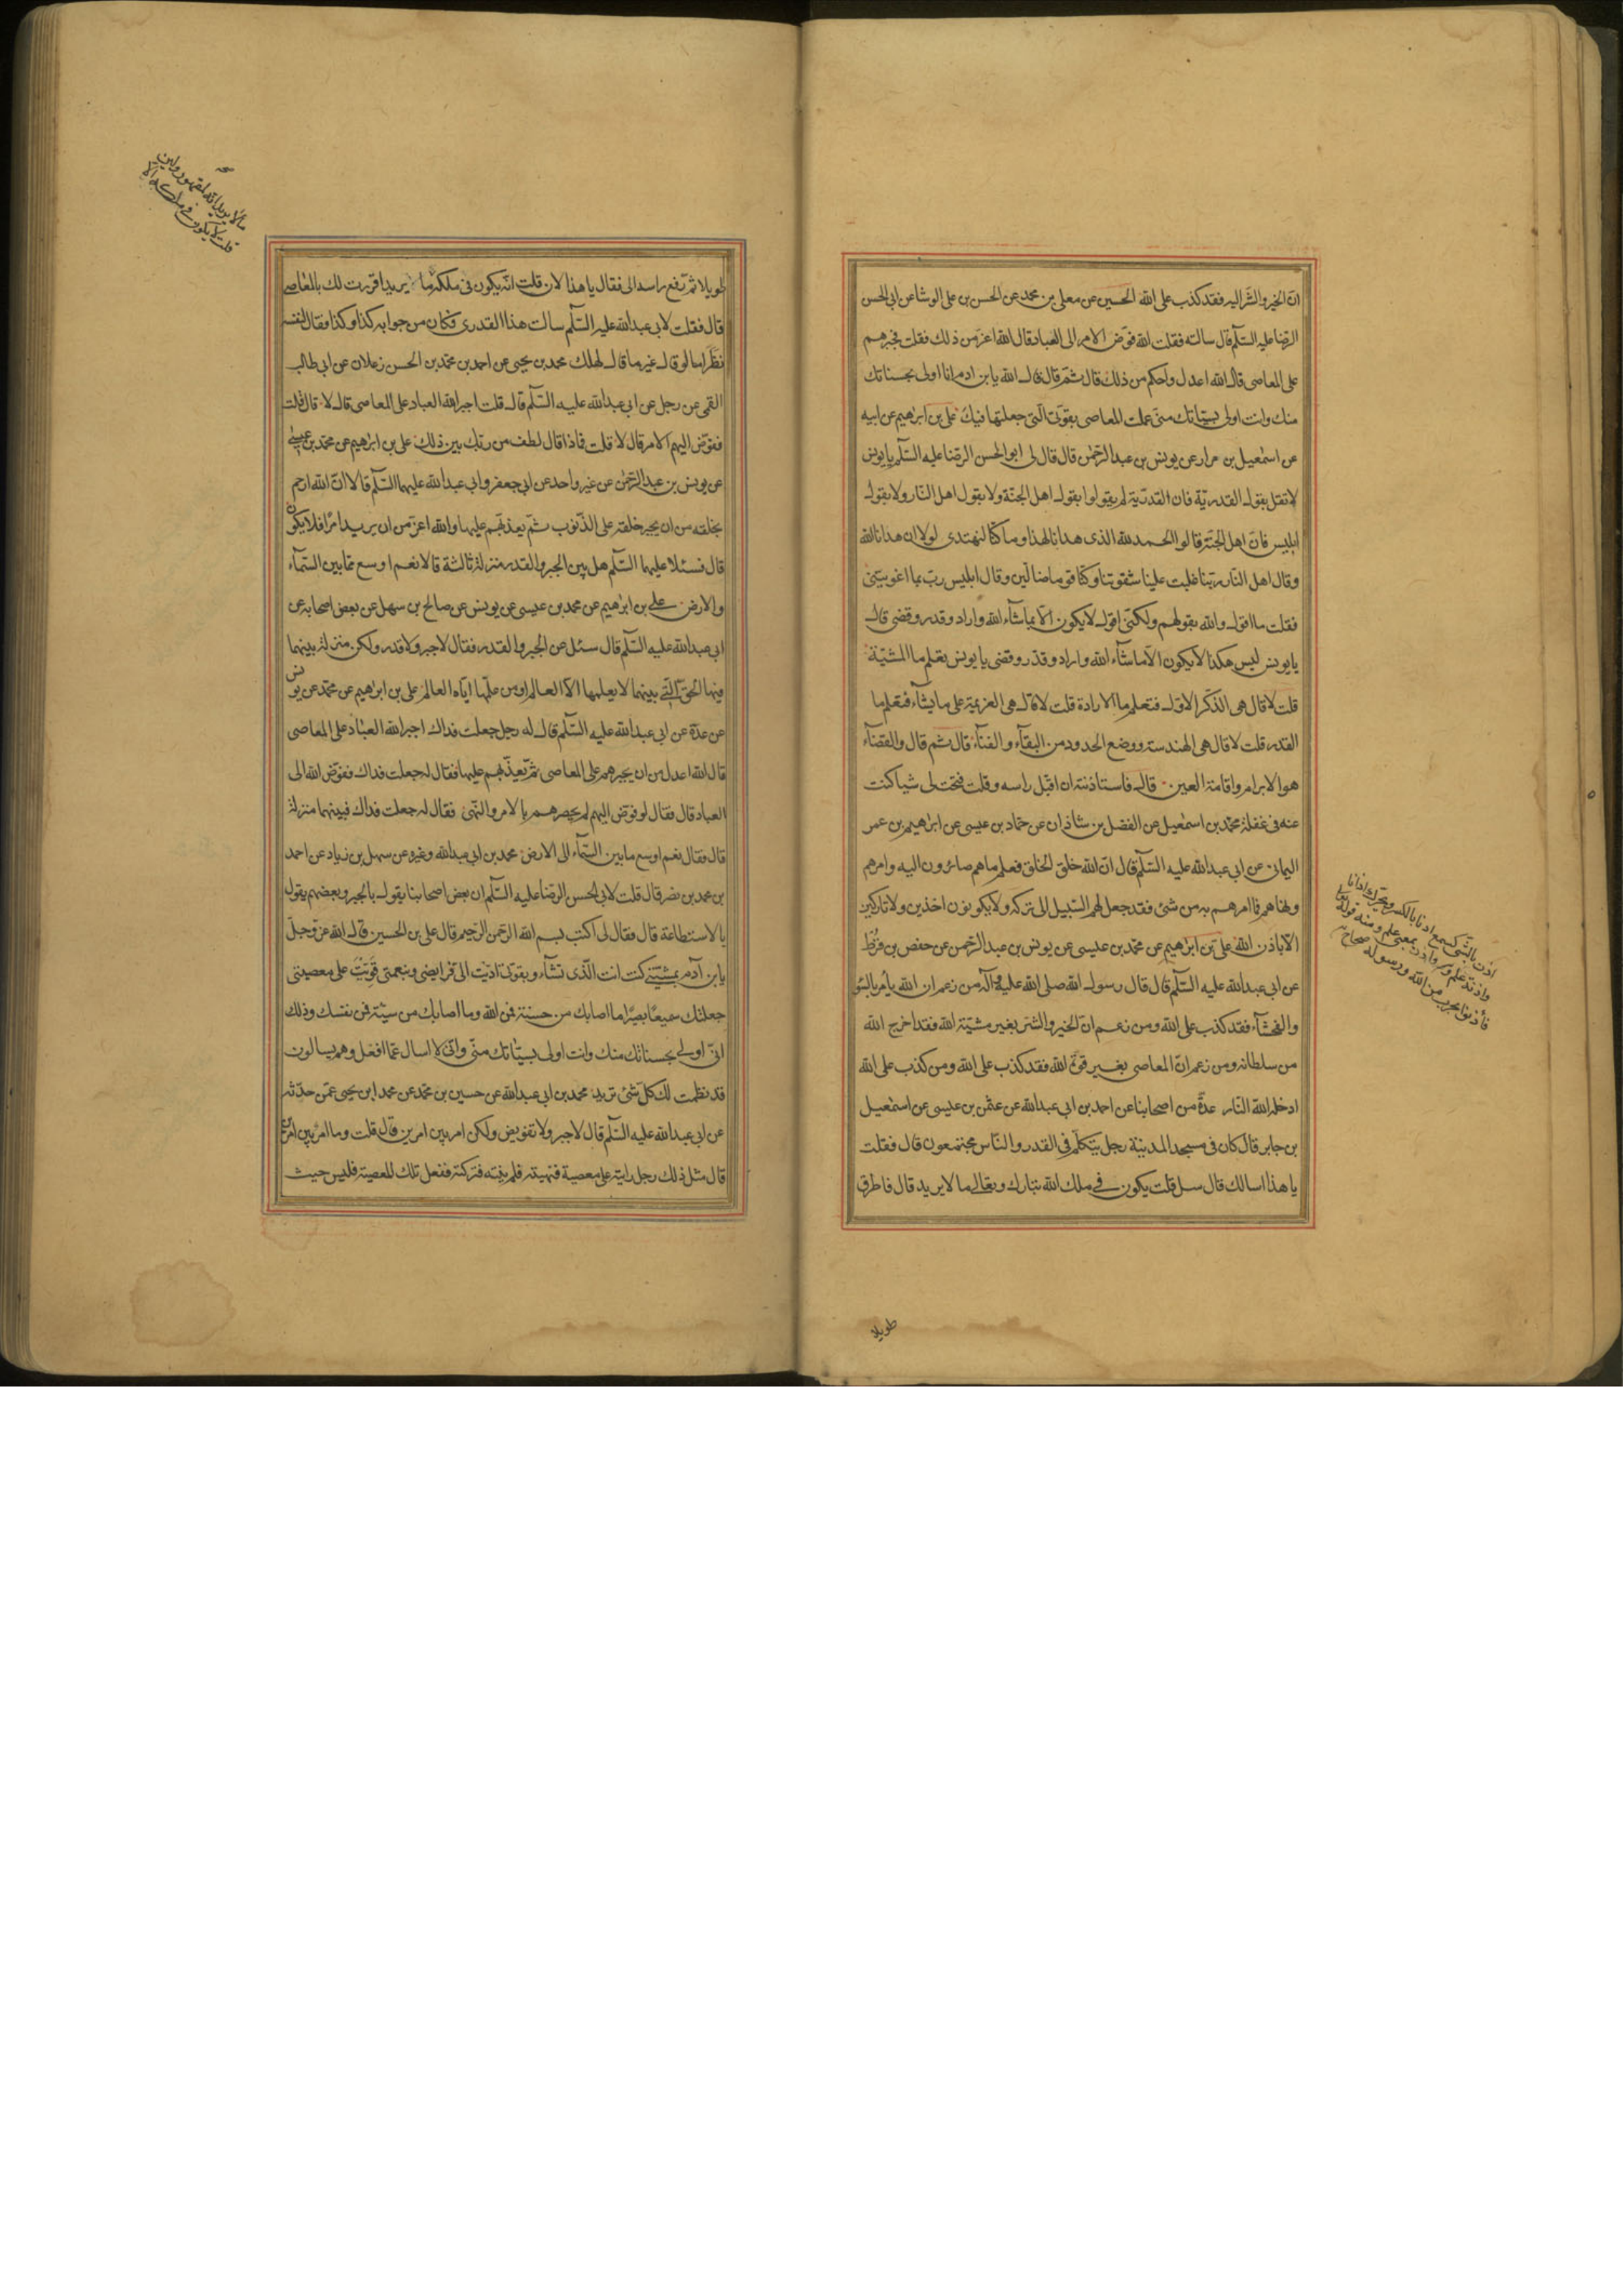 انّ الخير والشّر اليه فقد كذب على الله الحسين عن معلى بن محمد عن الحسن بن على الوشا عن ابى الحسن
الرضا عليه السّلم قال سالته فقلت الله فوّض الامر الى العباد قال الله اعزّ من ذلك فقلت فجبرهم
على المعاصى قال الله اعدل واحكم من ذلك قال ثمّ قال قال الله يا بن ادم انا اولى بحسناتك
منك وانت اولى بسيّئاتك منّى عملت المعاصى بقوّتى الّتى جعلتها فيك على بن ابرٰهيم عن ابيه
عن اسمٰعيل بن مرار عن يونس بن عبد الرّحمٰن قال قال لى ابو الحسن الرضا عليه السّلم يا يونس
لا تقل بقول القدريّة فان القدريّة لم يقولوا بقول اهل الجنّة ولا بقول اهل النّار ولا بقول
ابليس فانّ اهل الجنّة قالوا الحمد لله الذى هدانا لهذا وما كنّا لنهتدى لولا ان هدانا الله
وقال اهل النّار ربّنا غلبت علينا شقوتنا وكنّا قوما ضالّين وقال ابليس ربّ بما اغويتنى
فقلت ما اقول والله بقولهم ولكنّى اقول لا يكون الّا بما شآء الله واراد وقدر وقضى قال
يا يونس ليس هكذا لا يكون الّا ما شآء الله واراد وقدّر وقضى يا يونس تعلم ما المشيّة
قلت لا قال هى الذّكر الاوّل فتعلم ما الارادة قلت لا قال هى العزيمة على ما يشآء فتعلم ما
القدر قلت لا قال هى الهندسة ووضع الحدود من البقآء والفنآء قال ثم قال والقضآء
هو الابرام واقامة العين قال فاستاذنته ان اقبّل راسه وقلت فتحت لى شيا كنت
عنه فى غفلة محمّد بن اسمٰعيل عن الفضل بن شاذان عن حمّاد بن عيسى عن ابرٰهيم بن عمر
اليمانى عن ابى عبد الله عليه السّلم قال انّ الله خلق الخلق فعلم ما هم صائرون اليه وامرهم
ونهاهم فما امرهم به من شئ فقد جعل لهم السّبيل الى تركه ولا يكونون اخذين ولا تاركين
الّا باذن الله على بن ابرٰهيم عن محمّد بن عيسى عن يونس بن عبد الرّحمن عن حفص بن قرط
عن ابى عبد الله عليه السّلم قال قال رسول الله صلى الله عليه وآله من زعم ان الله يأمر بالسّو
والفحشآء فقد كذب على الله ومن زعم انّ الخير والشر بغير مشيّة الله فقد اخرج الله
من سلطانه ومن زعم انّ المعاصى بغير قوّة الله فقد كذب على الله ومن كذب على الله
ادخله الله النّار عدّة من اصحابنا عن احمد بن ابى عبد الله عن عثمٰن بن عيسى عن اسمٰعيل
بن جابر قال كان فى مسجد المدينة رجل يتكلّم فى القدر والنّاس مجتمعون قال فقلت
يا هذا اسالك قال سل قلت يكون فى ملك الله تبارك وتعالى ما لا يريد قال فاطرق
اذن بالشّئ كسمع اذنا بالكسر ويحرّك واذانا
واذنة علم وآذن بمعنى علم ومنه قوله تعالى
فأذنوا بحرب من الله ورسوله صحاح
طويلا
طويلا ثمّ رفع راسه الى فقال يا هذا لان قلت انّه يكون فى ملكه ما يريد اقررت لك بالمعاصى
قال فقلت لابى عبد الله عليه السّلم سالت هذا القدرى فكان من جوابه كذا وكذا فقال لنفسه
نظر اما لو قال غير ما قال لهلك محمد بن يحيى عن احمد بن محمّد بن الحسن زعلان عن ابى طالب
القمى عن رجل عن ابى عبد الله عليه السّلم قال قلت اجبر الله العباد على المعاصى قال لا قال قلت
ففوّض اليهم الامر قال لا قلت فماذا قال لطف من ربّك بين ذلك على بن ابرٰهيم عن محمّد بن عيسى
عن يونس بن عبد الرّحمٰن عن غير واحد عن ابى جعفر وابى عبد الله عليهما السّلم قالا انّ الله ارحم
بخلقه من ان يجبر خلقه على الذّنوب ثمّ يعذّبهم عليها والله اعزّ من ان يريد امرًا فلا يكون
قال فسئلا عليهما السّلم هل بين الجبر والقدر منزلة ثالثة قالا نعم اوسع ممّا بين السّمآء
والارض على بن ابرٰهيم عن محمد بن عيسى عن يونس عن صالح بن سهل عن بعض اصحابه عن
ابى عبد الله عليه السّلم قال سئل عن الجبر والقدر فقال لا جبر ولا قدر ولكن منزلة بينهما
فيها الحقّ الّتى بينهما لا يعلمها الّا العالم او من علّمها ايّاه العالم على بن ابرٰهيم عن محمّد عن يونس
عن عدّة عن ابى عبد الله عليه السّلم قال له رجل جعلت فداك اجبر الله العباد على المعاصى
قال الله اعدل من ان يجبرهم على المعاصى ثمّ يعذّبهم عليها فقال له جعلت فداك ففوّض الله الى
العباد قال فقال لو فوّض اليهم لم يحصرهم بالامر والنّهى فقال له جعلت فداك فبينهما منزلة
قال فقال نعم اوسع ما بين السّمآء الى الارض محمد بن ابى عبد الله وغيره عن سهل بن زياد عن احمد
بن محمد بن نصر قال قلت لابى الحسن الرضا عليه السّلم ان بعض اصحابنا يقول بالجبر وبعضهم يقول
بالاستطاعة قال فقال لى اكتب بسم الله الرّحمن الرّحيم قال على بن الحسين قال الله عزّ وجلّ
يا بن آدم بمشيّتى كنت انت الّذى تشآء وبقوّتى ادّيت الىّ فرايضى وبنعمتى قويت على معصيتى
جعلتك سميعًا بصيرًا ما اصابك من حسنة فمن الله وما اصابك من سيّئة فمن نفسك وذلك
انّى اولى بحسناتك منك وانت اولى بسيّئاتك منّى وانّى لا اسال عمّا افعل وهم يسالون
قد نظمت لك كلّ شئ تريد محمد بن ابى عبد الله عن حسين بن محمّد عن محمد ابن يحيى عمّن حدّثه
عن ابى عبد الله عليه السّلم قال لا جبر ولا تفويض ولكن امر بين امرين قال قلت وما امر بين امرين
قال مثل ذلك رجل رايته على معصية فنهيته فلم ينته فتركته ففعل تلك المعصية فليس حيث
ما لا يريد انّه لمقهور ولئن
قلت لا يكون فى ملكه الّا